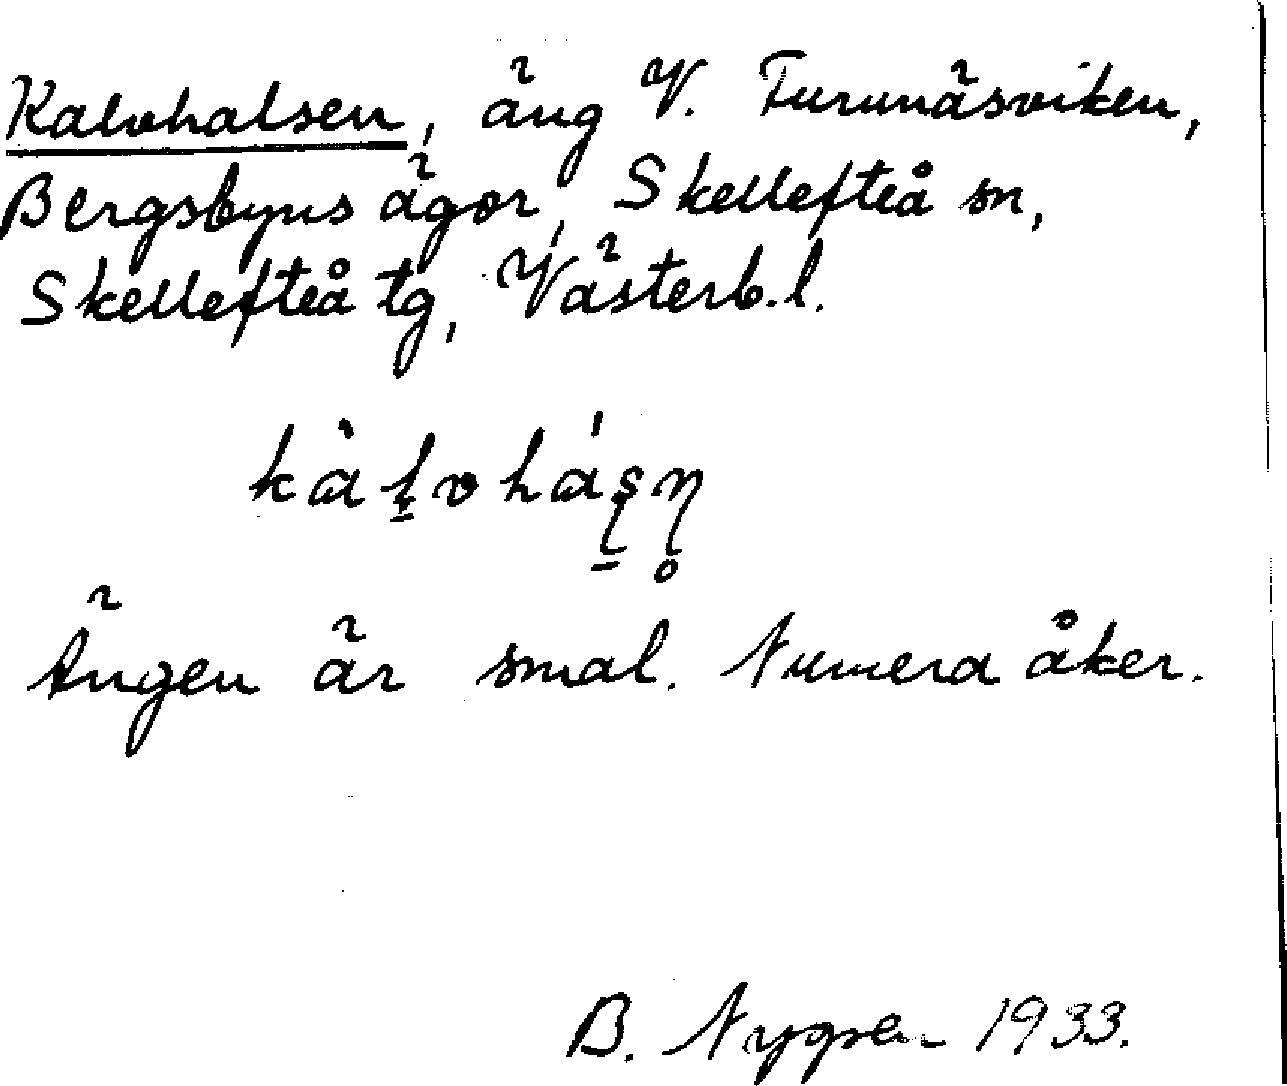 Kalvhalsen, äng V. Furunäsviken,
Bergsbyns ägor, Skellefteå sn,
Skellefteå tg, Västerb. l.
Ängen är smal. Numera åker.
B. Nygren 1933.